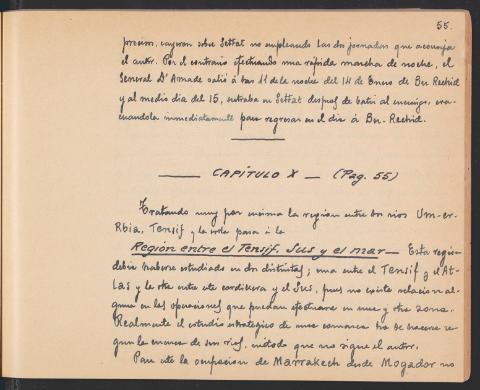 55.
precisos, cayeron sobre Settat no empleando las dos jornadas que aconseja
el autor. Por el contrario efectuando una rápida marcha de noche, el
General D'Amade salió á las 11 de la noche del 14 de Enero de Ber Rechid
y al medio dia del 15, entraba en Settat despues de batir al enemigo, eva-
cuandola inmediatamente para regresar en el dia á Ber-Rechid.
CAPÍTULO X — (Pag. 55)
Tratando muy por encima la region entre los rios Um-er-
Rbia, Tensif y la costa pasa á la
Región entre el Tensif, Sus y el mar — Esta región
debia haberse estudiado en dos distintas; una entre el Tensif y el At-
las y la otra entre esta cordillera y el Sus, pues no existe relacion al-
guna en las operaciones que puedan efectuarse en una y otra zona.
Realmente el estudio estratégico de una comarca ha de hacerse se-
gun la cuenca de sus rios, método que no sigue el autor.
Para este la ocupacion de Marrakech desde Mogador no